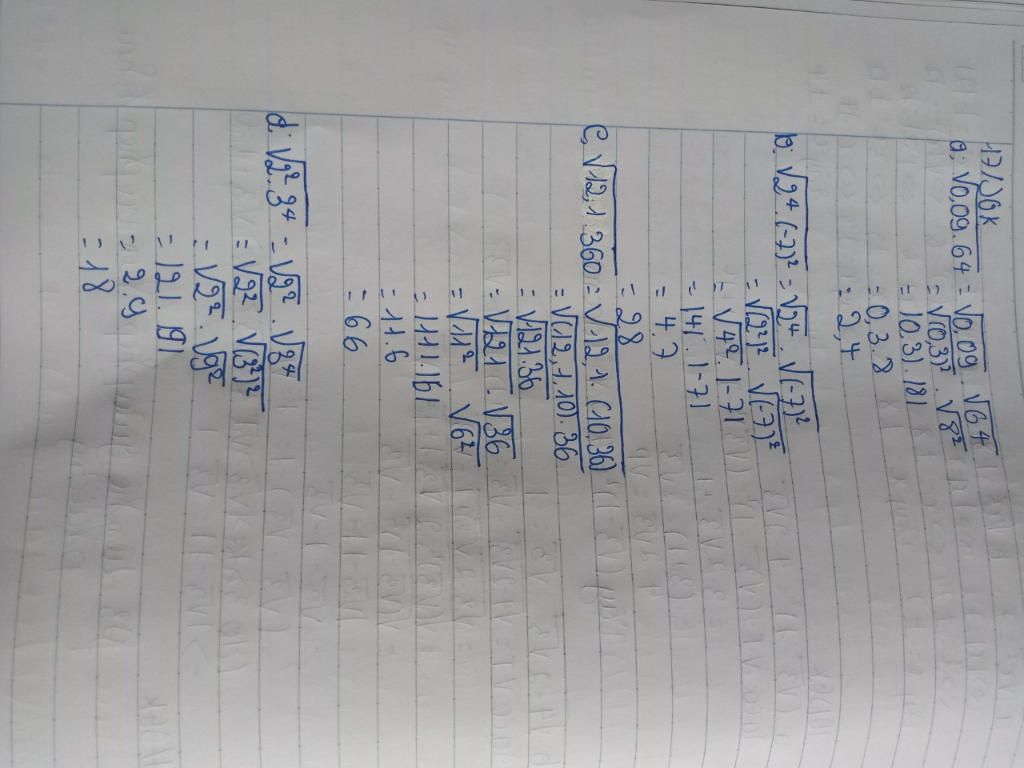 17/SGK
a. √0,09.64 = √0,09 . √64
= √(0,3)² . √8²
= |0,3| . |8|
= 0,3 . 8
= 2,4
b. √2⁴ . (-7)² = √2⁴ . √(-7)²
= √(2²)² . √(-7)²
= √4² . |-7|
= |4| . |-7|
= 4.7
= 28
C. √12,1.360 = √12,1.(10.36)
= √(12,1.10).36
= √121.36
= √121 . √36
= √11² . √6²
= |11| . |6|
= 11.6
= 66
d. √2².3⁴ = √2² . √3⁴
= √2² . √(3²)²
= √2² . √9²
= |2| . |9|
= 2.9
= 18